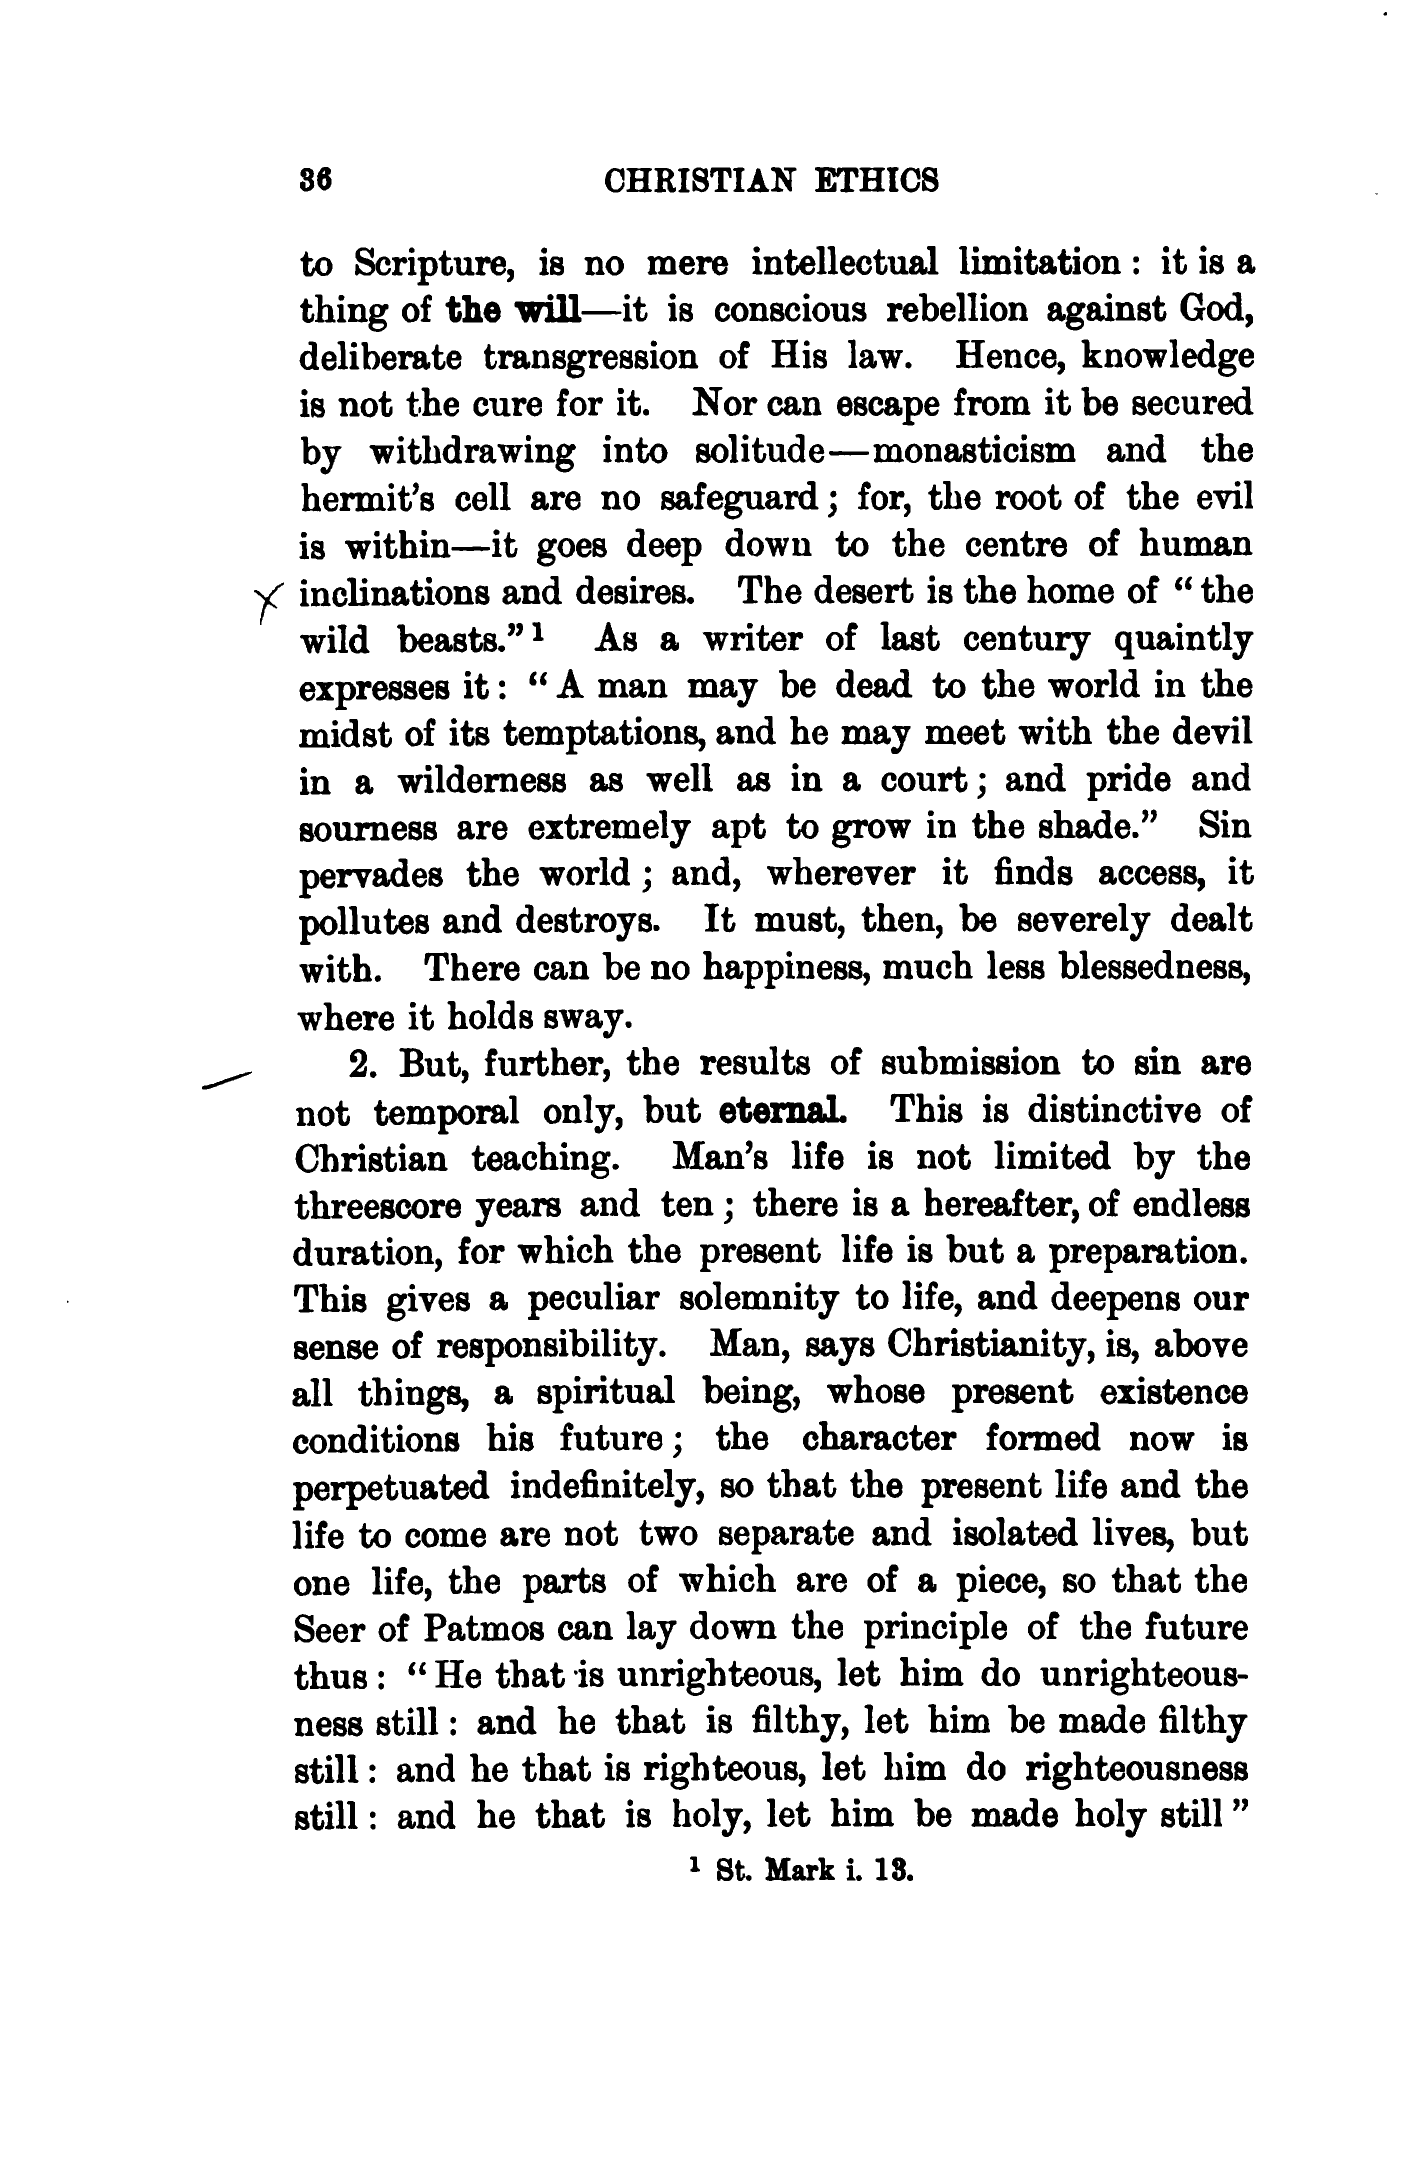 36 CHRISTIAN ETHICS
to Scripture, is no mere intellectual limitation : it is a
thing of the will—it is conscious rebellion against God,
deliberate transgression of His law. Hence, knowledge
is not the cure for it. Nor can escape from it be secured
by withdrawing into solitude—monasticism and the
hermit's cell are no safeguard ; for, the root of the evil
is within—it goes deep down to the centre of human
inclinations and desires. The desert is the home of “ the
wild beasts.” 1 As a writer of last century quaintly
expresses it : “ A man may be dead to the world in the
midst of its temptations, and he may meet with the devil
in a wilderness as well as in a court ; and pride and
sourness are extremely apt to grow in the shade.” Sin
pervades the world ; and, wherever it finds access, it
pollutes and destroys. It must, then, be severely dealt
with. There can be no happiness, much less blessedness,
where it holds sway.
2. But, further, the results of submission to sin are
not temporal only, but eternal. This is distinctive of
Christian teaching. Man's life is not limited by the
threescore years and ten ; there is a hereafter, of endless
duration, for which the present life is but a preparation.
This gives a peculiar solemnity to life, and deepens our
sense of responsibility. Man, says Christianity, is, above
all things, a spiritual being, whose present existence
conditions his future ; the character formed now is
perpetuated indefinitely, so that the present life and the
life to come are not two separate and isolated lives, but
one life, the parts of which are of a piece, so that the
Seer of Patmos can lay down the principle of the future
thus : “ He that is unrighteous, let him do unrighteous-
ness still : and he that is filthy, let him be made filthy
still : and he that is righteous, let him do righteousness
still : and he that is holy, let him be made holy still ”
1 St. Mark i. 13.